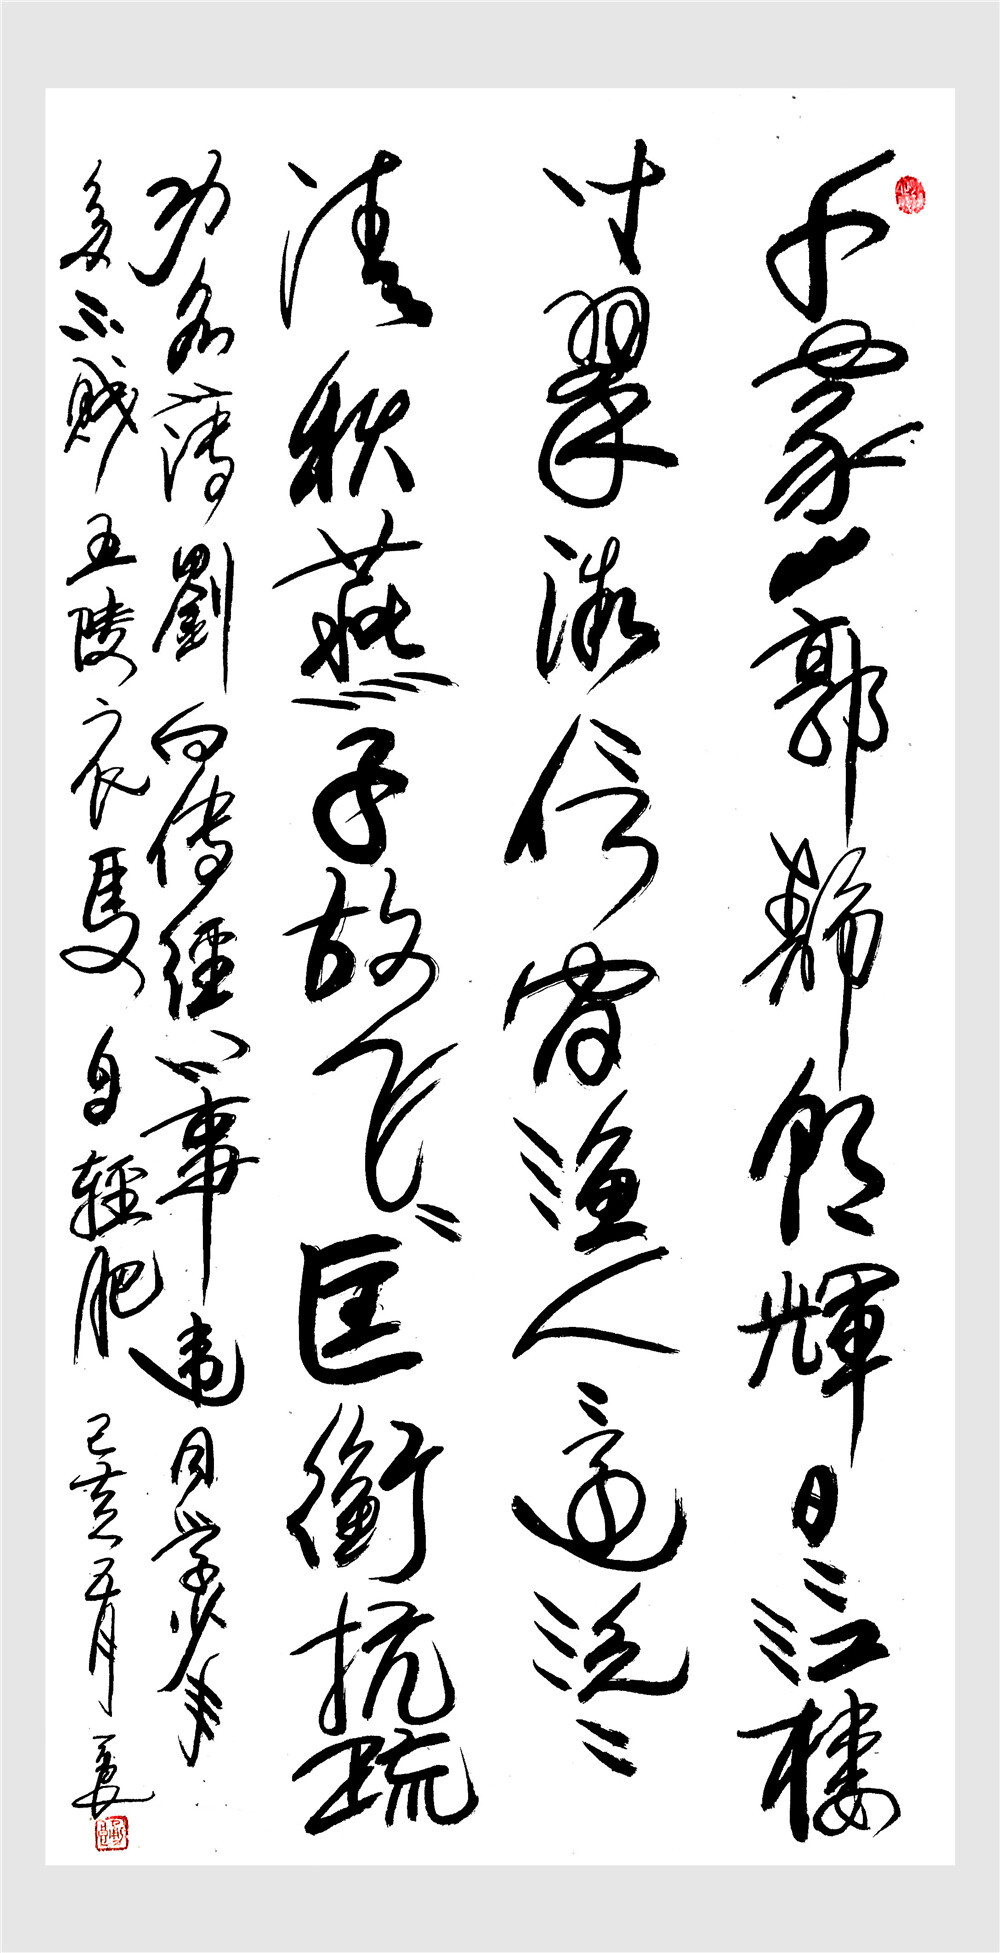 千家山郭靜朝輝日〻江樓
坐翠微信宿漁人還泛〻
清秋燕子故飞〻匡衡抗疏
功名薄劉向傳經心事違同學少年
多不賤五陵衣馬自輕肥 己亥五月